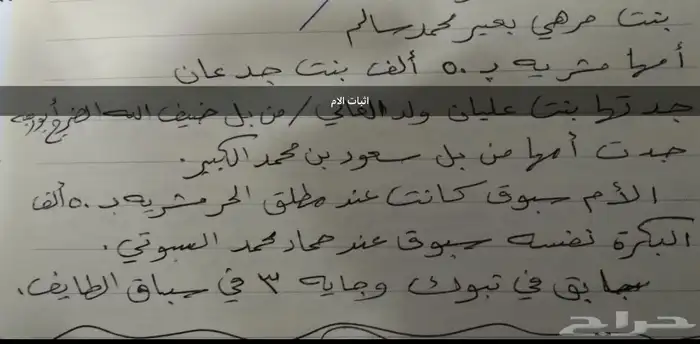 بنت مرهي بعير محمد سالم /
أمها مشريه بـ ٥٠ ألف بنت جدعان
اثبات الام
جدتها بنت عليان ولد الغالي / من بل ضيف الله
جدت أمها من بل سعود بن محمد الكبير.
الأم سبوق كانت عند مطلق الحر مشريه بـ ٥٠ ألف
البكرة نفسه سبوق عند حماد محمد السبوتي.
سابق في تبوك وجايه ٣ في سباق الطايف.
حراج